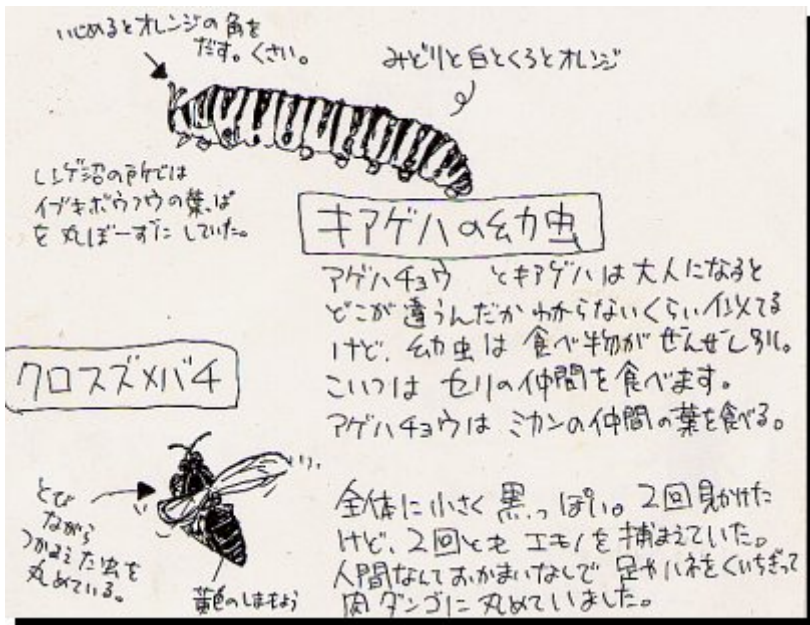 いじめるとオレンジの角を
だす。くさい。
みどりと白とくろとオレンジ
レンゲ沼の所では
イブキボウフウの葉っぱ
を丸ぼーずにしていた。
キアゲハの幼虫
アゲハチョウ とキアゲハは大人になると
どこが違うんだかわからないくらい似てる
けど、幼虫は食べ物がぜんぜん別。
こいつはセリの仲間を食べます。
アゲハチョウはミカンの仲間の葉を食べる。
クロスズメバチ
とび
ながら
つかまえた虫を
丸めている。
黄色のしまもよう
全体に小さく黒っぽい。2回見かけた
けど、2回ともエモノを捕まえていた。
人間なんておかまいなしで足やハネをくいちぎって
肉ダンゴに丸めていました。